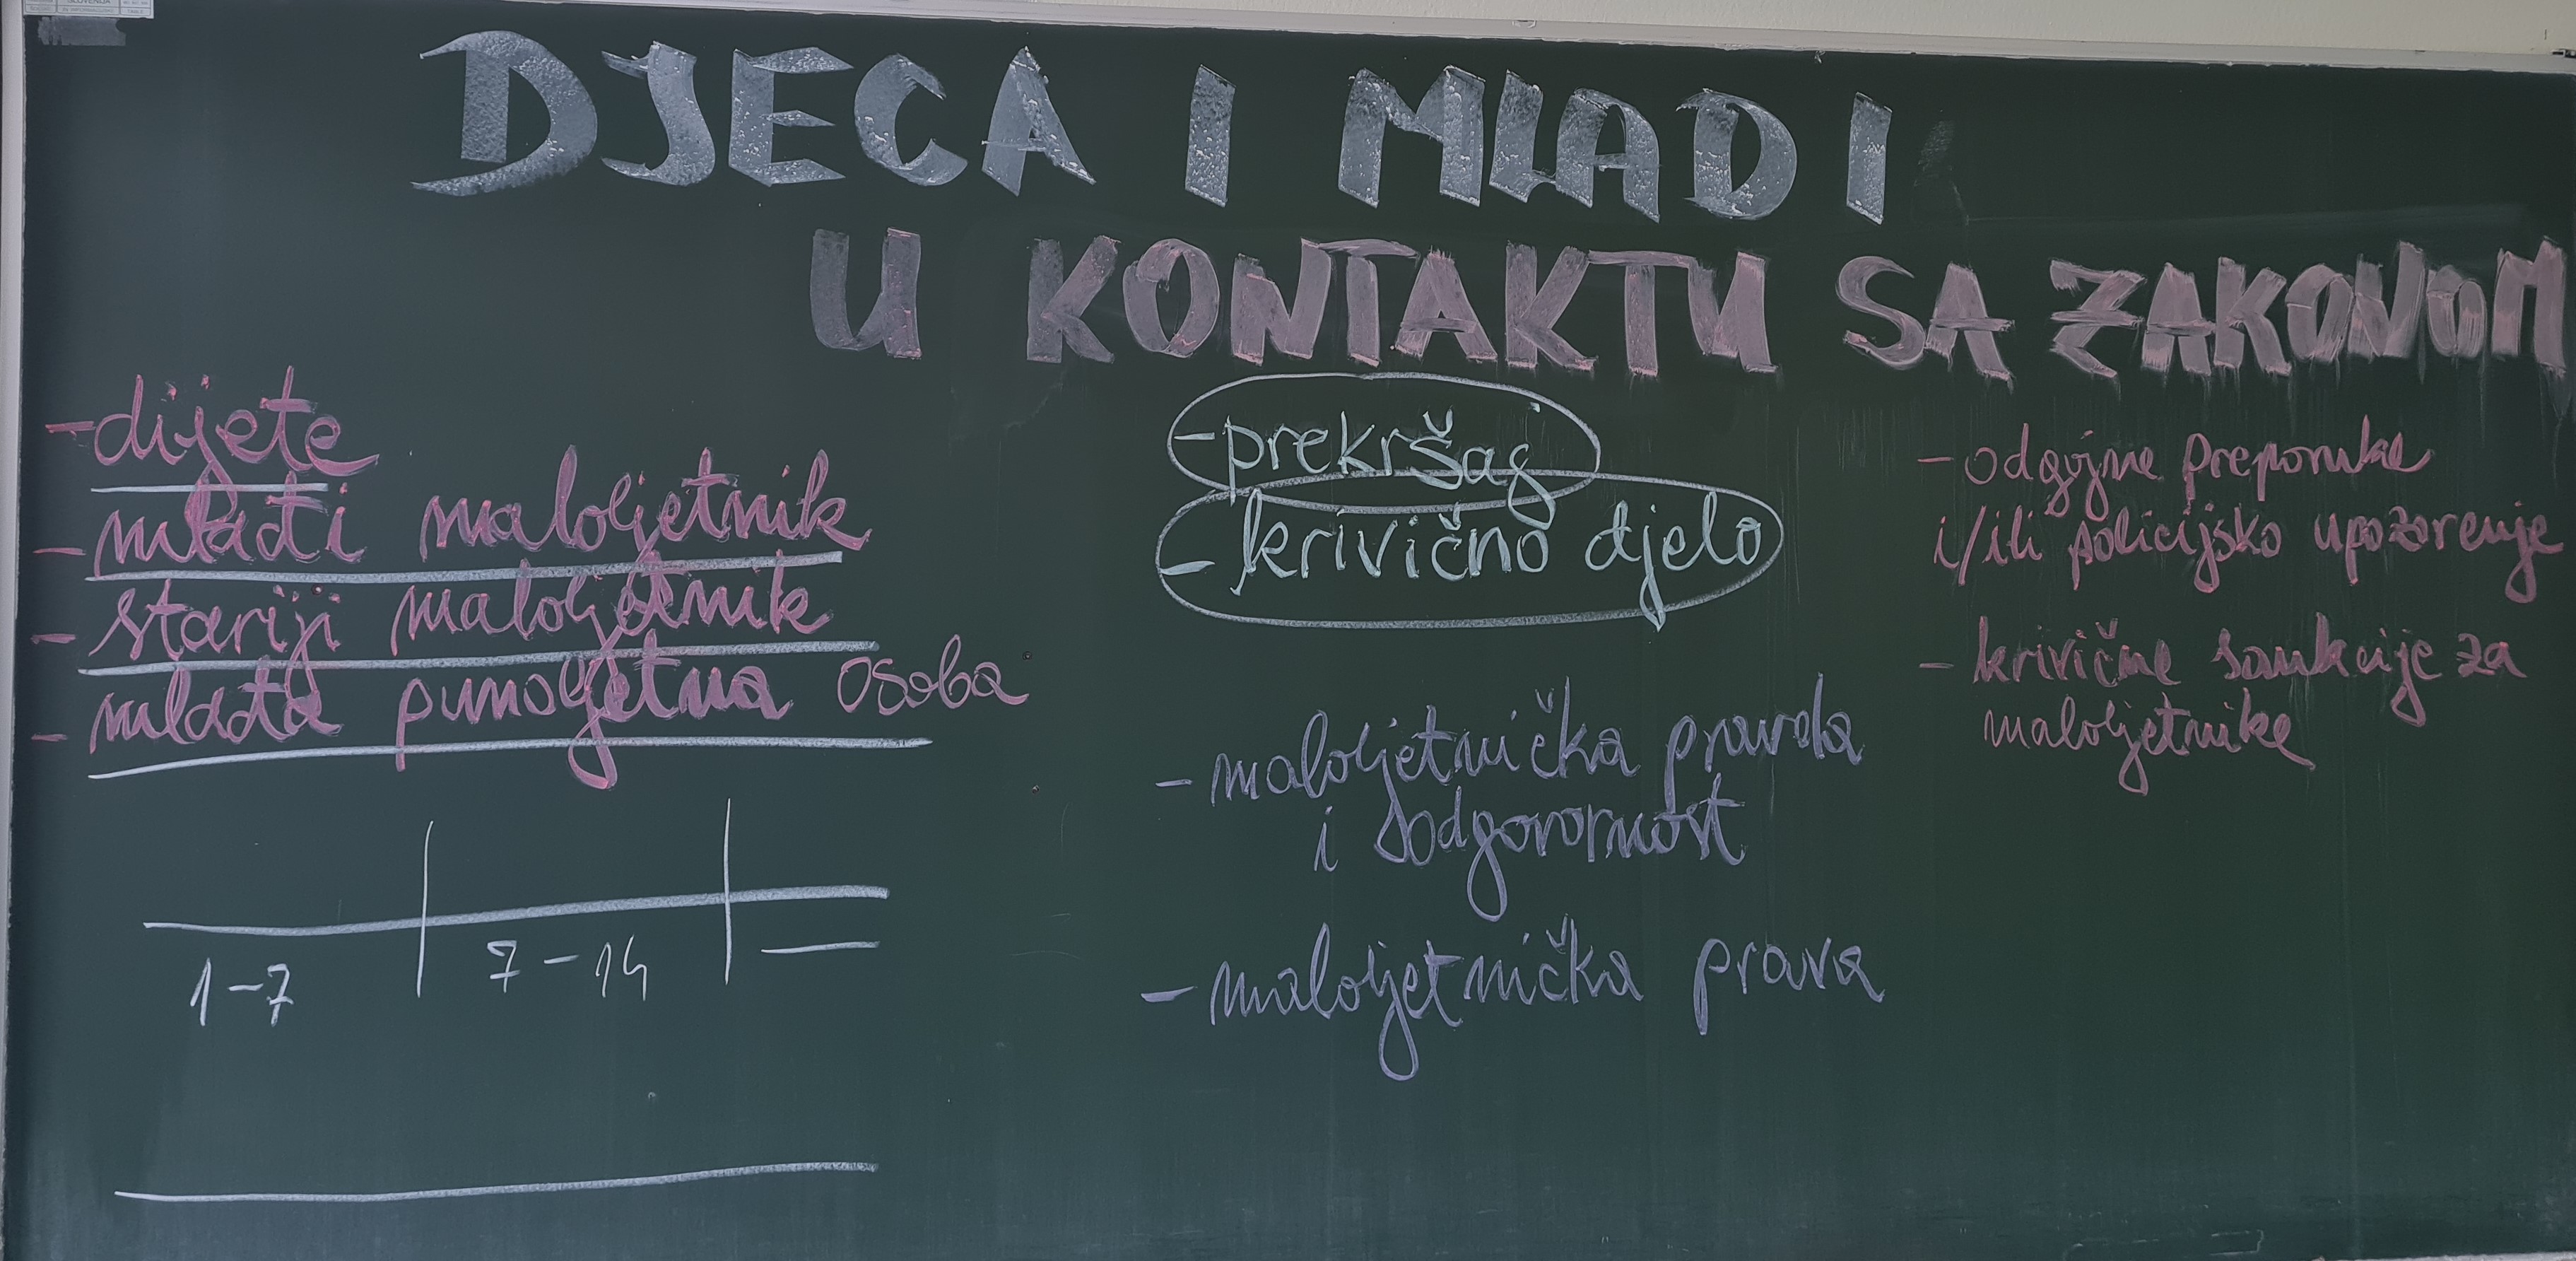 DJECA I MLADI
U KONTAKTU SA ZAKONOM
- dijete
- mlađi maloljetnik
- stariji maloljetnik
- mlađa punoljetna osoba
1-7
7-14
- prekršaj
- krivično djelo
- maloljetnička pravda
i odgovornost
- maloljetnička prava
- odgojne preporuke
i/ili policijsko upozorenje
- krivične sankcije za
maloljetnike